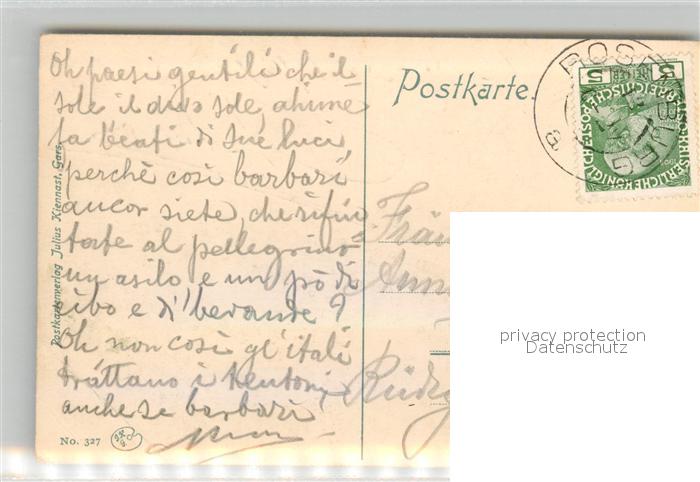 Oh paesi gentili che il
sole il duo sole, ahimè
fa beati di sue luci
perchè così barbari
ancor siete, che rifiu
tate al pellegrino
un asilo e un pò di
cibo e di bevande?
Oh non così gl'itali
trattano i teutoni,
anche se barbari
Postkarte.
ROSENBURG
a
5 5
KAISERLICHE KÖNIGLICHE
ÖSTERREICHISCHE POST
Fräu
Anna
Postkartenverlag Julius Kiennast, Gars.
No. 327
privacy protection
Datenschutz